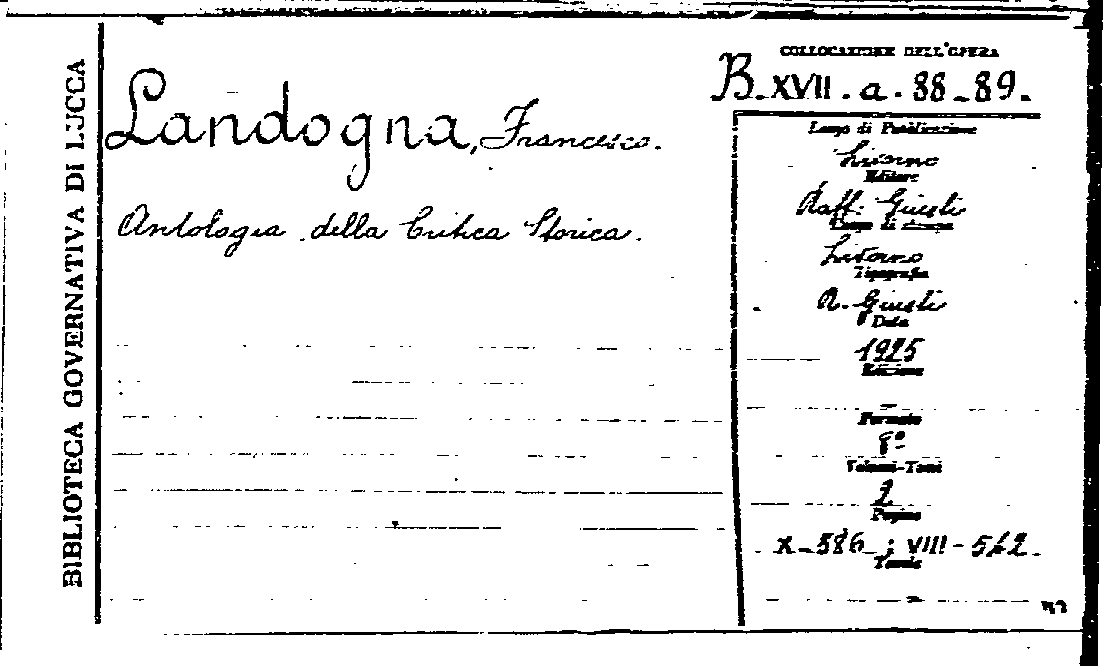 BIBLIOTECA GOVERNATIVA DI LUCCA
Landogna, Francesco.
Antologia della Critica Storica.
COLLOCAZIONE DELL'OPERA
B. XVII. a. 88-89.
Luogo di Pubblicazione
Livorno
Editore
Raff. Giusti
Luogo di stampa
Livorno
Tipografia
R. Giusti
Data
1925
Edizione
Formato
8º
Volumi-Tomi
2
Pagine
X-586; VIII-
Tavole